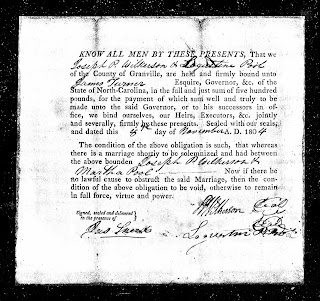 KNOW ALL MEN BY THESE PRESENTS, That we
Joseph P. Wilkerson &
of the County of Granville, are held and firmly bound unto
James Turner Esquire, Governor, &c. of the
State of North-Carolina, in the full and just sum of five hundred
pounds, for the payment of which sum well and truly to be
made unto the said Governor, or to his successors in of-
fice, we bind ourselves, our Heirs, Executors, &c. jointly
and severally, firmly by these presents. Sealed with our seals,
and dated this day of November A. D. 1804
The condition of the above obligation is such, that whereas
there is a marriage shortly to be solemnized and had between
the above bounden Joseph P. Wilkerson &
Martha Pool Now if there be
no lawful cause to obstruct the said Marriage, then the con-
dition of the above obligation to be void, otherwise to remain
in full force, virtue and power.
Wilkerson Seal
Signed, sealed and delivered
in the presence of